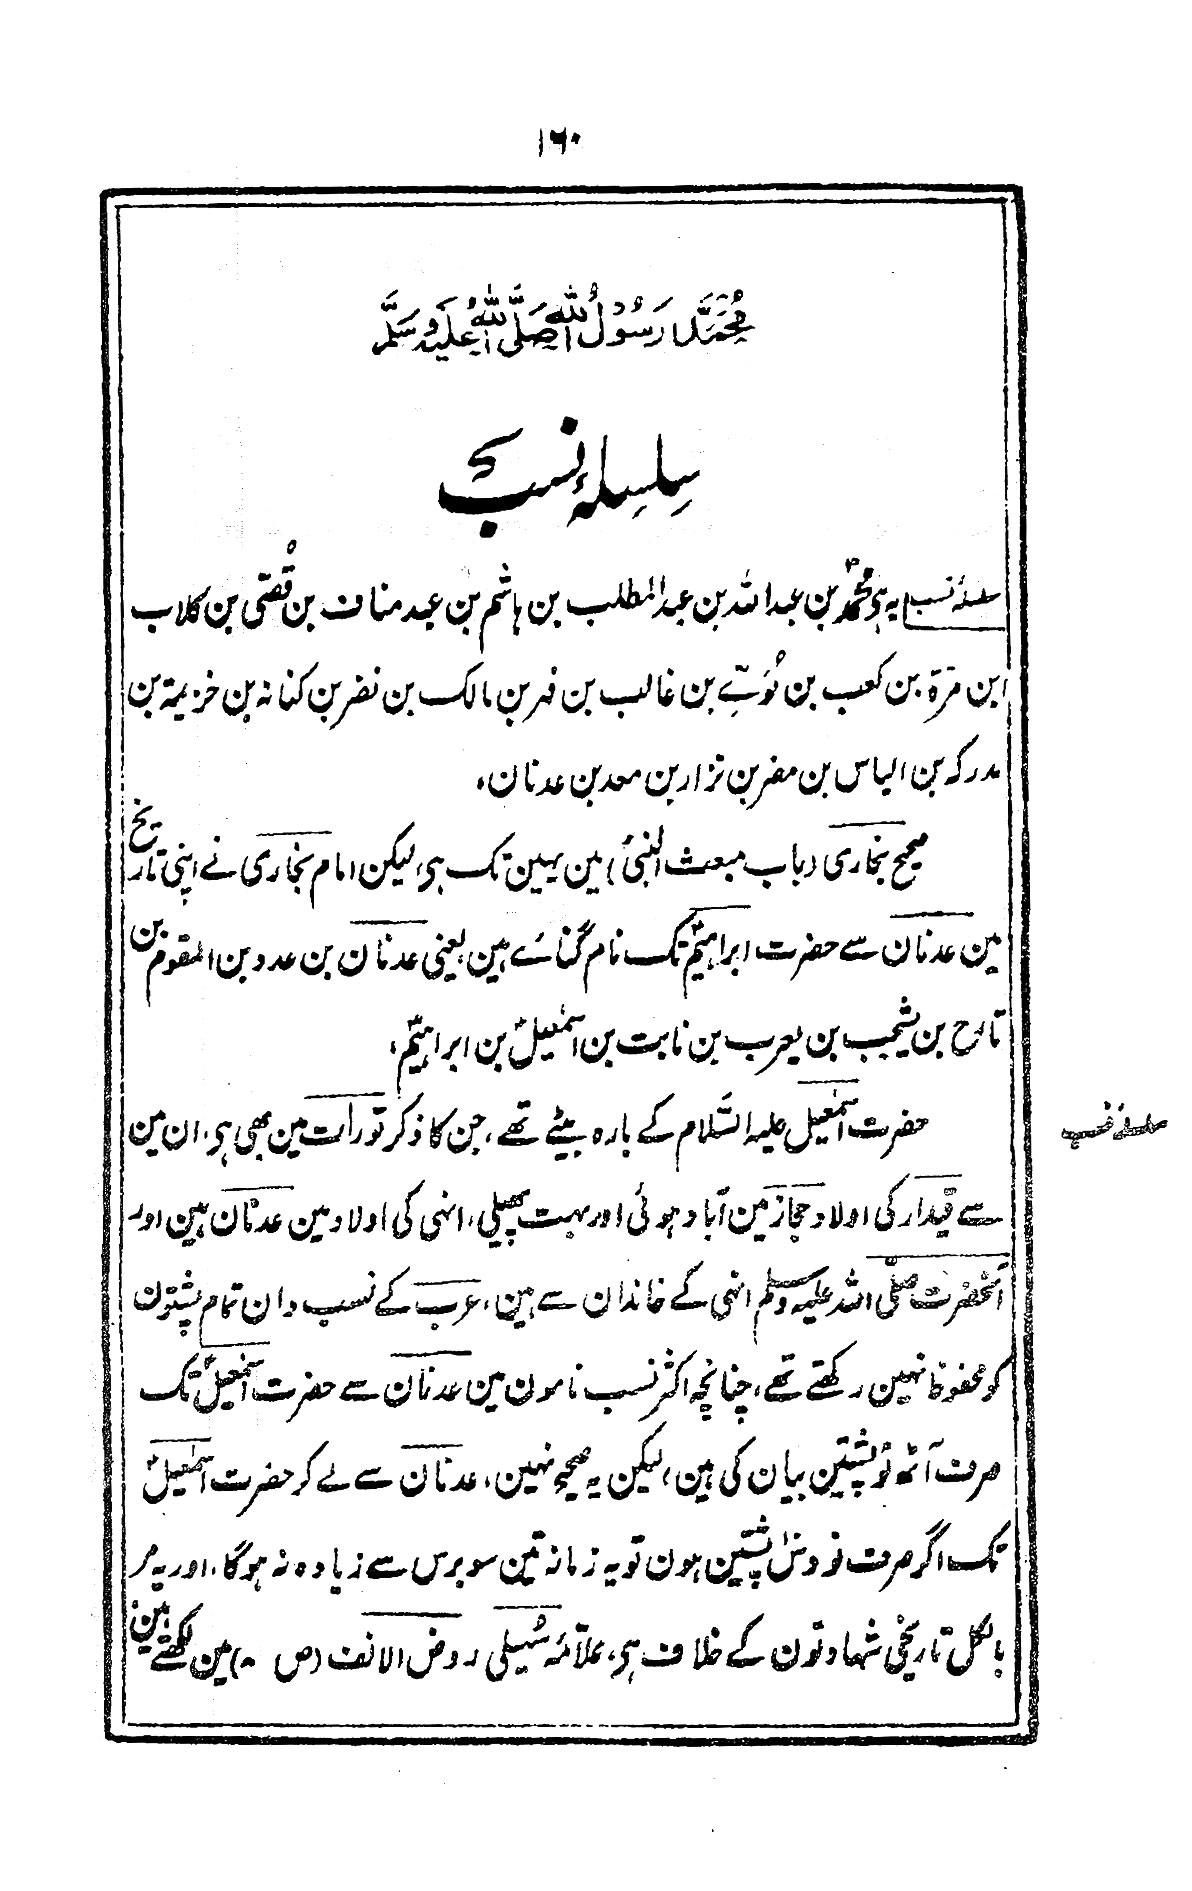 ۱۶۰
مُحَمَّدٌ رَسُوْلُ اللهِ صَلَّی اللهُ عَلَیْهِ وَسَلَّمَ
سلسلۂ نسب
سلسلۂ نسب یہ ہی محمدؐ بن عبداللہ بن عبدالمطلب بن ہاشم بن عبد مناف بن قُصّی بن کلاب
ابن مرّۃ بن کعب بن لُوَیّ بن غالب بن فہر بن مالک بن نضر بن کنانہ بن خزیمۃ بن
مدرکہ بن الیاس بن مضر بن نزار بن معد بن عدنان،
صحیح بخاری (باب مبعث النبیؐ) مین یہین تک ہی، لیکن امام بخاری نے اپنی تاریخ
مین عدنان سے حضرت ابراہیمؑ تک نام گنائے ہین، یعنی عدنان بن عدد بن المقوم بن
تارح بن یشجب بن یعرب بن نابت بن اسمٰعیلؑ بن ابراہیمؑ،
حضرت اسمٰعیل علیہ السّلام کے بارہ بیٹے تھے، جن کا ذکر تورات مین بھی ہی، ان مین
سلسلۂ نسب
سے قیدار کی اولاد حجاز مین آباد ہوئی اور بہت پھیلی، انہی کی اولاد مین عدنان ہین اور
آنحضرت صلّی اللہ علیہ وسلم انہی کے خاندان سے ہین، عرب کے نسب دان تمام پشتون
کو محفوظ نہین رکھتے تھے، چنانچہ اکثر نسب نامون مین عدنان سے حضرت اسمٰعیلؑ تک
صرف آٹھ نو پشتین بیان کی ہین، لیکن یہ صحیح نہین، عدنان سے لے کر حضرت اسمٰعیلؑ
تک اگر صرف نو دس پشتین ہون تو یہ زمانہ تین سو برس سے زیادہ نہ ہوگا، اور یہ امر
بالکل تاریخی شہادتون کے خلاف ہی، علامۂ سُہیلی روض الانف (ص ۸) مین لکھتے ہین: